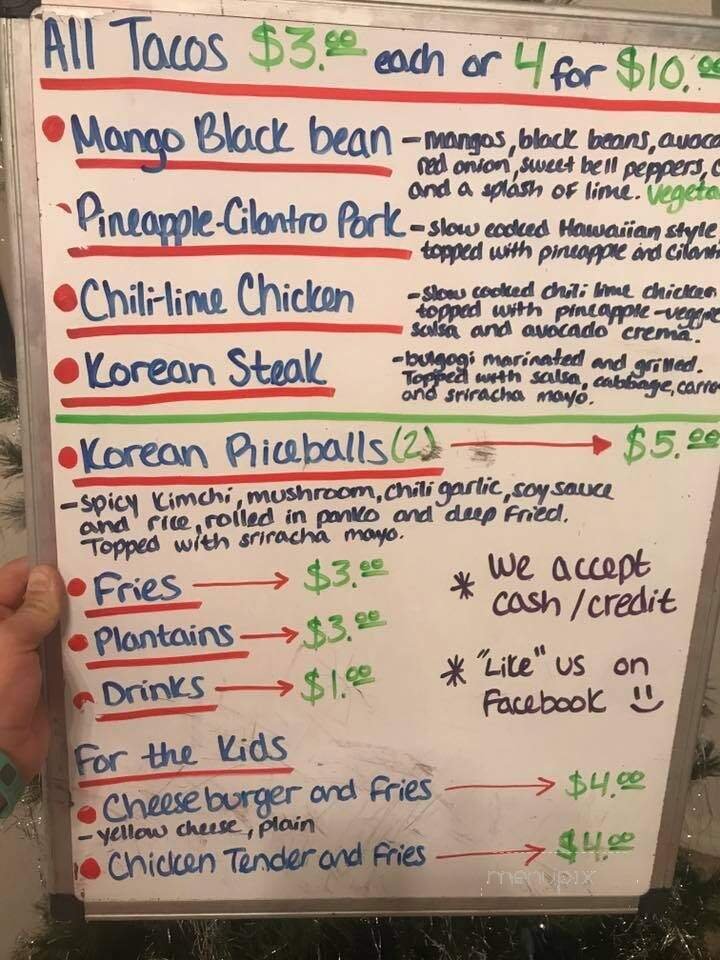 All Tacos $3.00 each or 4 for $10.00
Mango Black bean - mangos, black beans,
red onion, sweet bell peppers,
and a splash of lime.
Pineapple-Cilantro Pork - slow cooked Hawaiian style
topped with pineapple and
Chili-lime Chicken - slow cooked chili lime chicken
topped with pineapple -
salsa and avocado crema.
Korean Steak - bulgogi marinated and grilled.
Topped with salsa, cabbage,
and sriracha mayo.
Korean Riceballs (2) $5.00
- spicy kimchi, mushroom, chili garlic, soy sauce
and rice, rolled in panko and deep fried.
Topped with sriracha mayo.
Fries $3.00
* We accept
cash/credit
Plantains $3.00
Drinks $1.00
* "Like" us on
Facebook
For the Kids
Cheeseburger and fries $4.00
- yellow cheese, plain
Chicken Tender and Fries $4.00
menupix